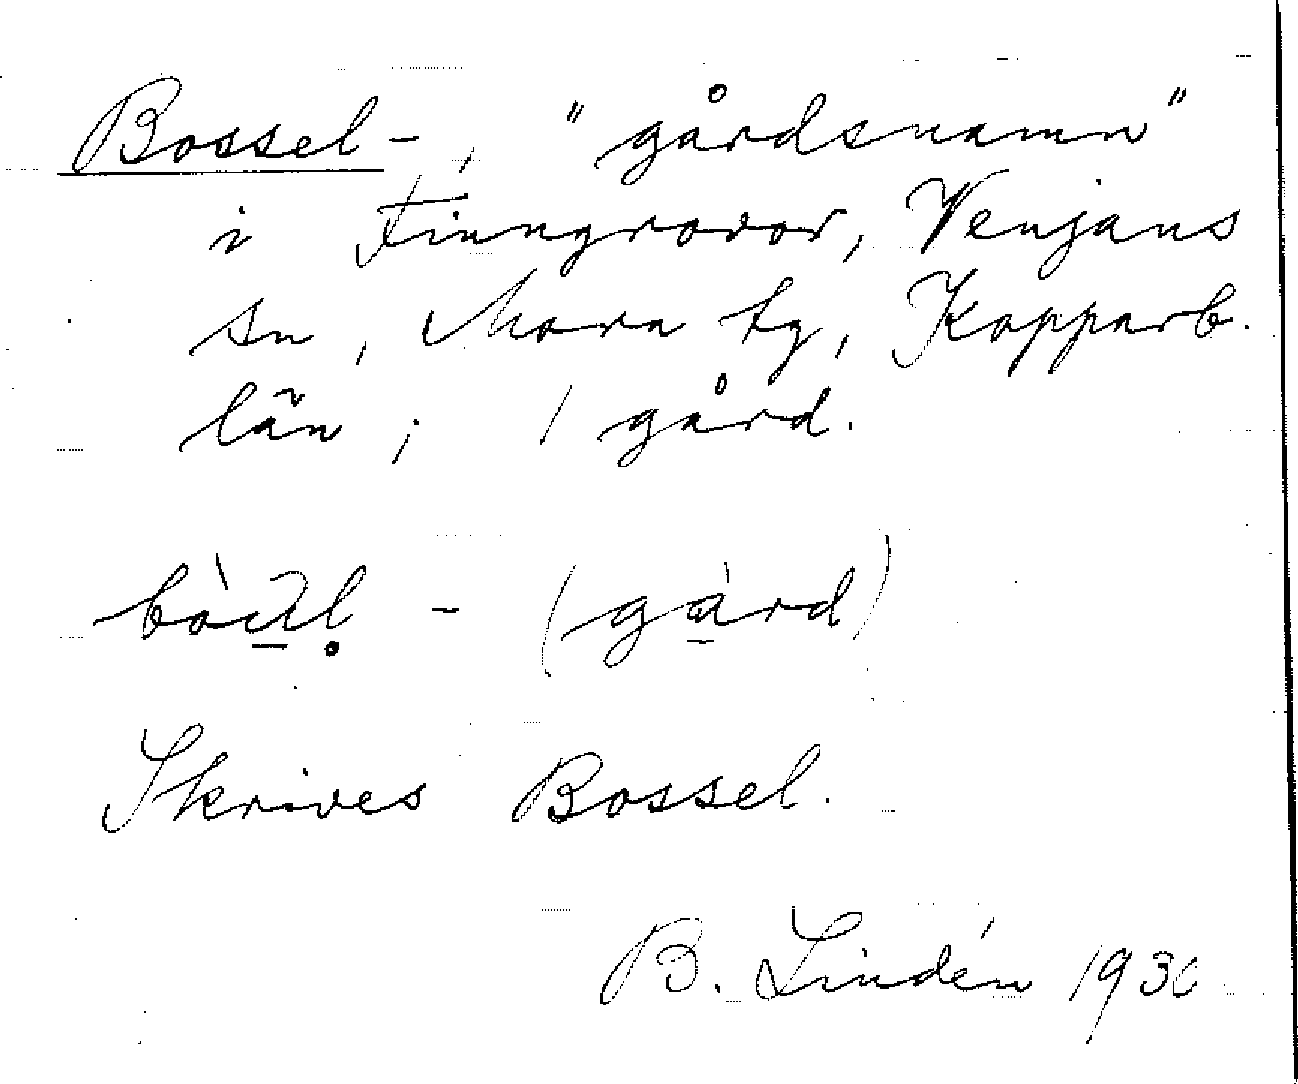 Bossel-, "gårdsnamn"
i Finngruvor, Venjans
sn, Mora tg, Kopparb.
län; 1 gård.
- (gård)
Skrives Bossel.
B. Lindén 1930